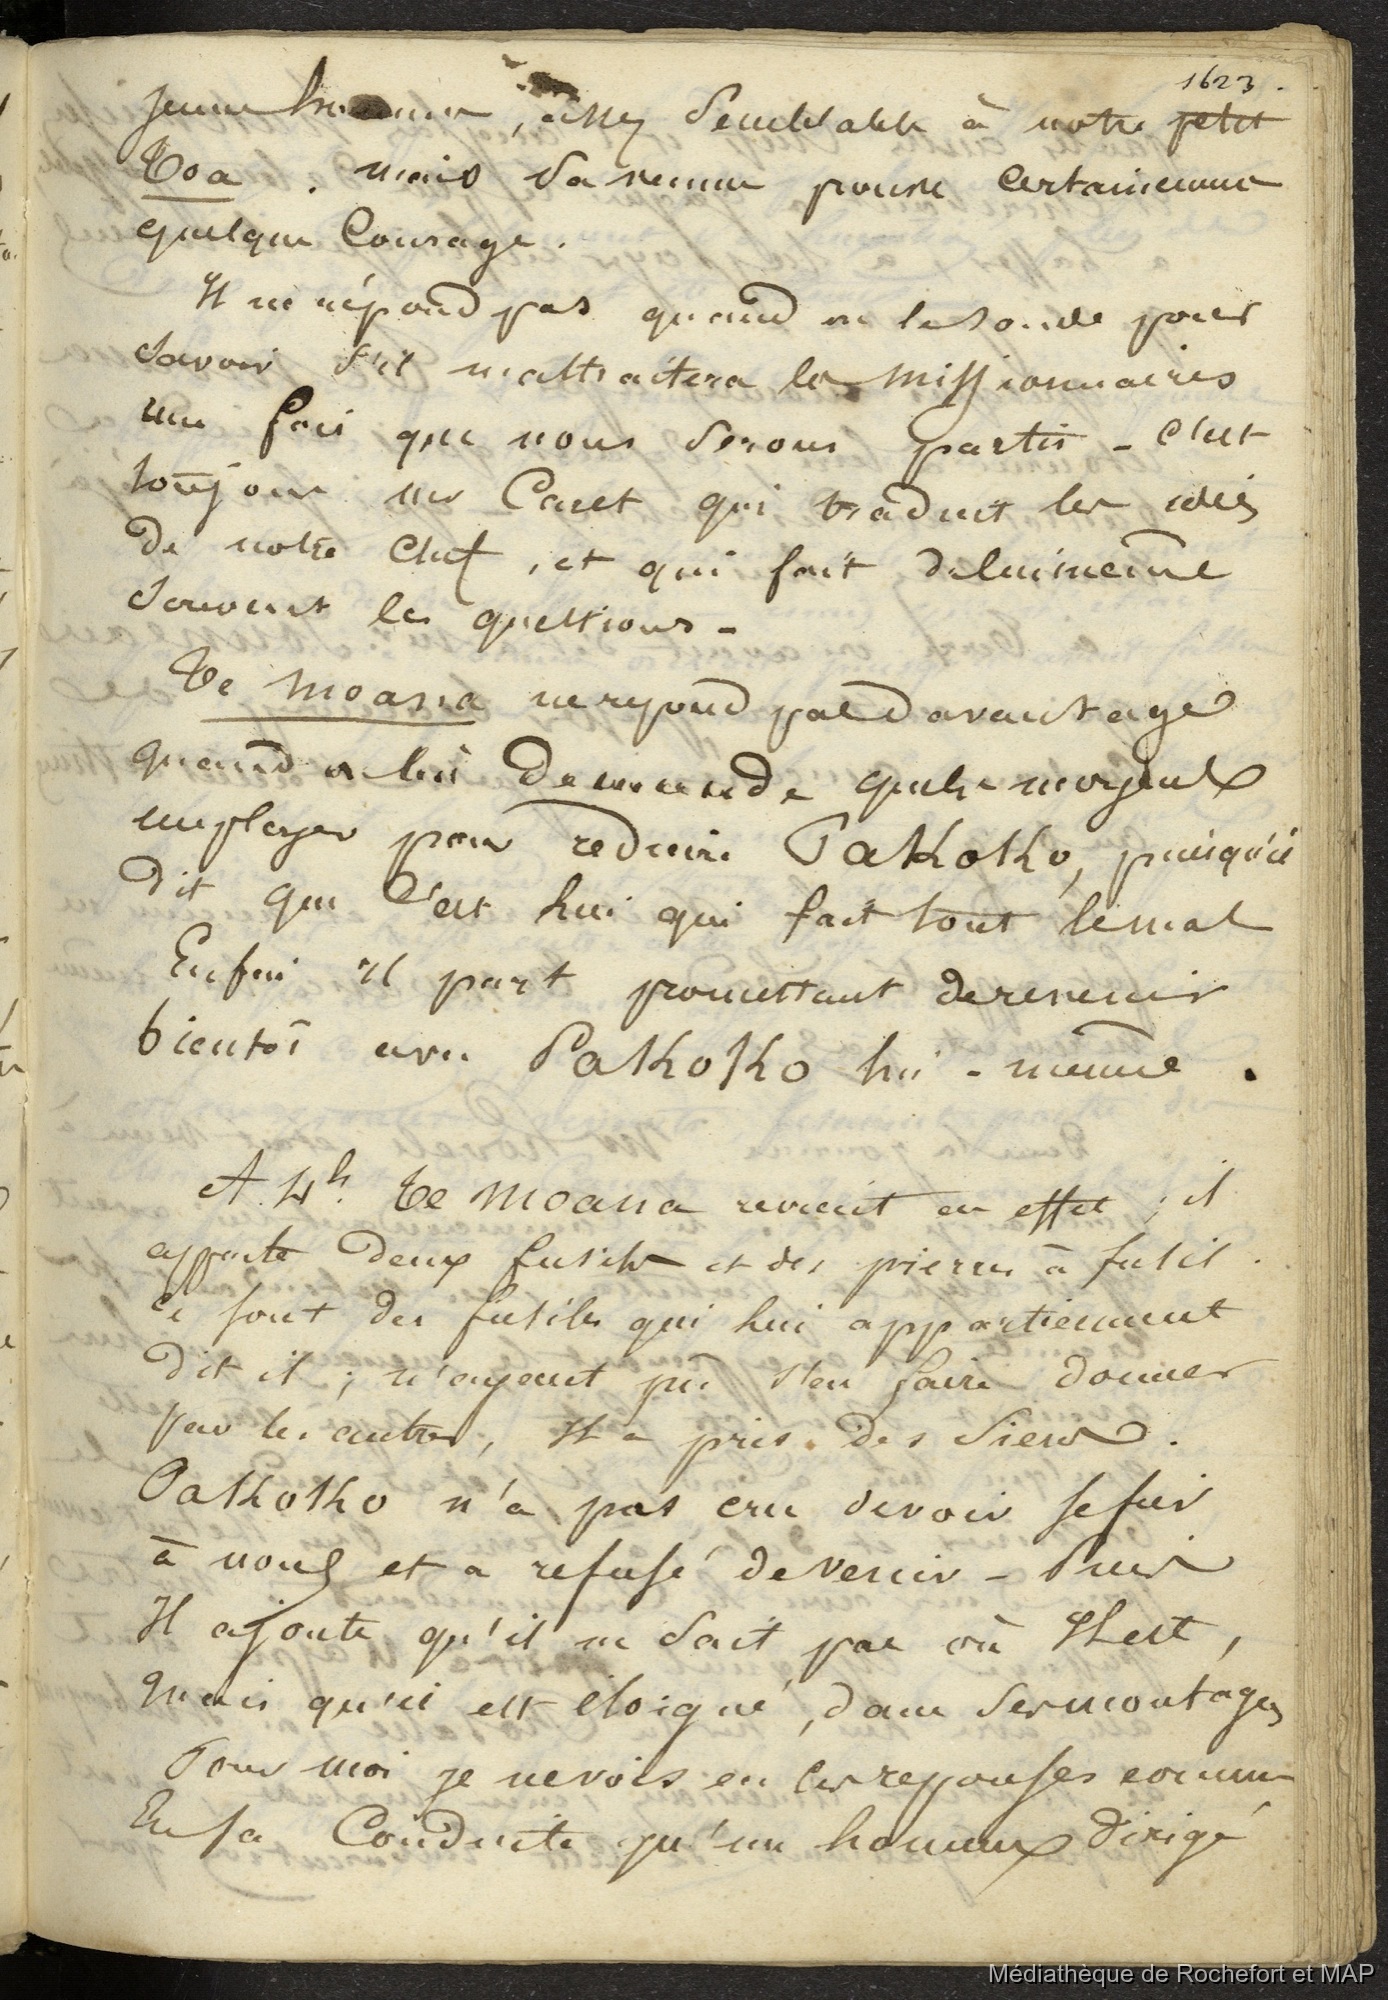 1623.
jeune homme, assez semblable à notre petit
Toa. mais sa venue prouve certainement
quelque Courage.
Il ne répond pas quand on le sonde pour
savoir s'il maltraitera les missionnaires
une fois que nous serons partis - c'est
toujours mr Caret qui traduit les idées
de notre chef, et qui fait de lui même
souvent les questions -
Te Moana ne repond pas davantage
quand on lui demande quels moyens
employer pour reduire Pakoko, puisqu'il
dit que c'est lui qui fait tout le mal
Enfin il part promettant de revenir
bientôt avec Pakoko lui-même.
A 4h. Te Moana revient en effet ; il
apporte deux fusils et des pierres à fusil.
Ce sont des fusils qui lui appartiennent
dit il ; n'ayant pû s'en faire donner
par les autres, il a pris des siens.
Pakoko n'a pas cru devoir se fier
à nous et a refusé de venir - Puis
Il ajoute qu'il ne sait pas où Il est,
mais qu'il est éloigné, dans ses montagnes
Pour moi je ne vois en ces reponses comme
En sa Conduite qu'un homme dirigé